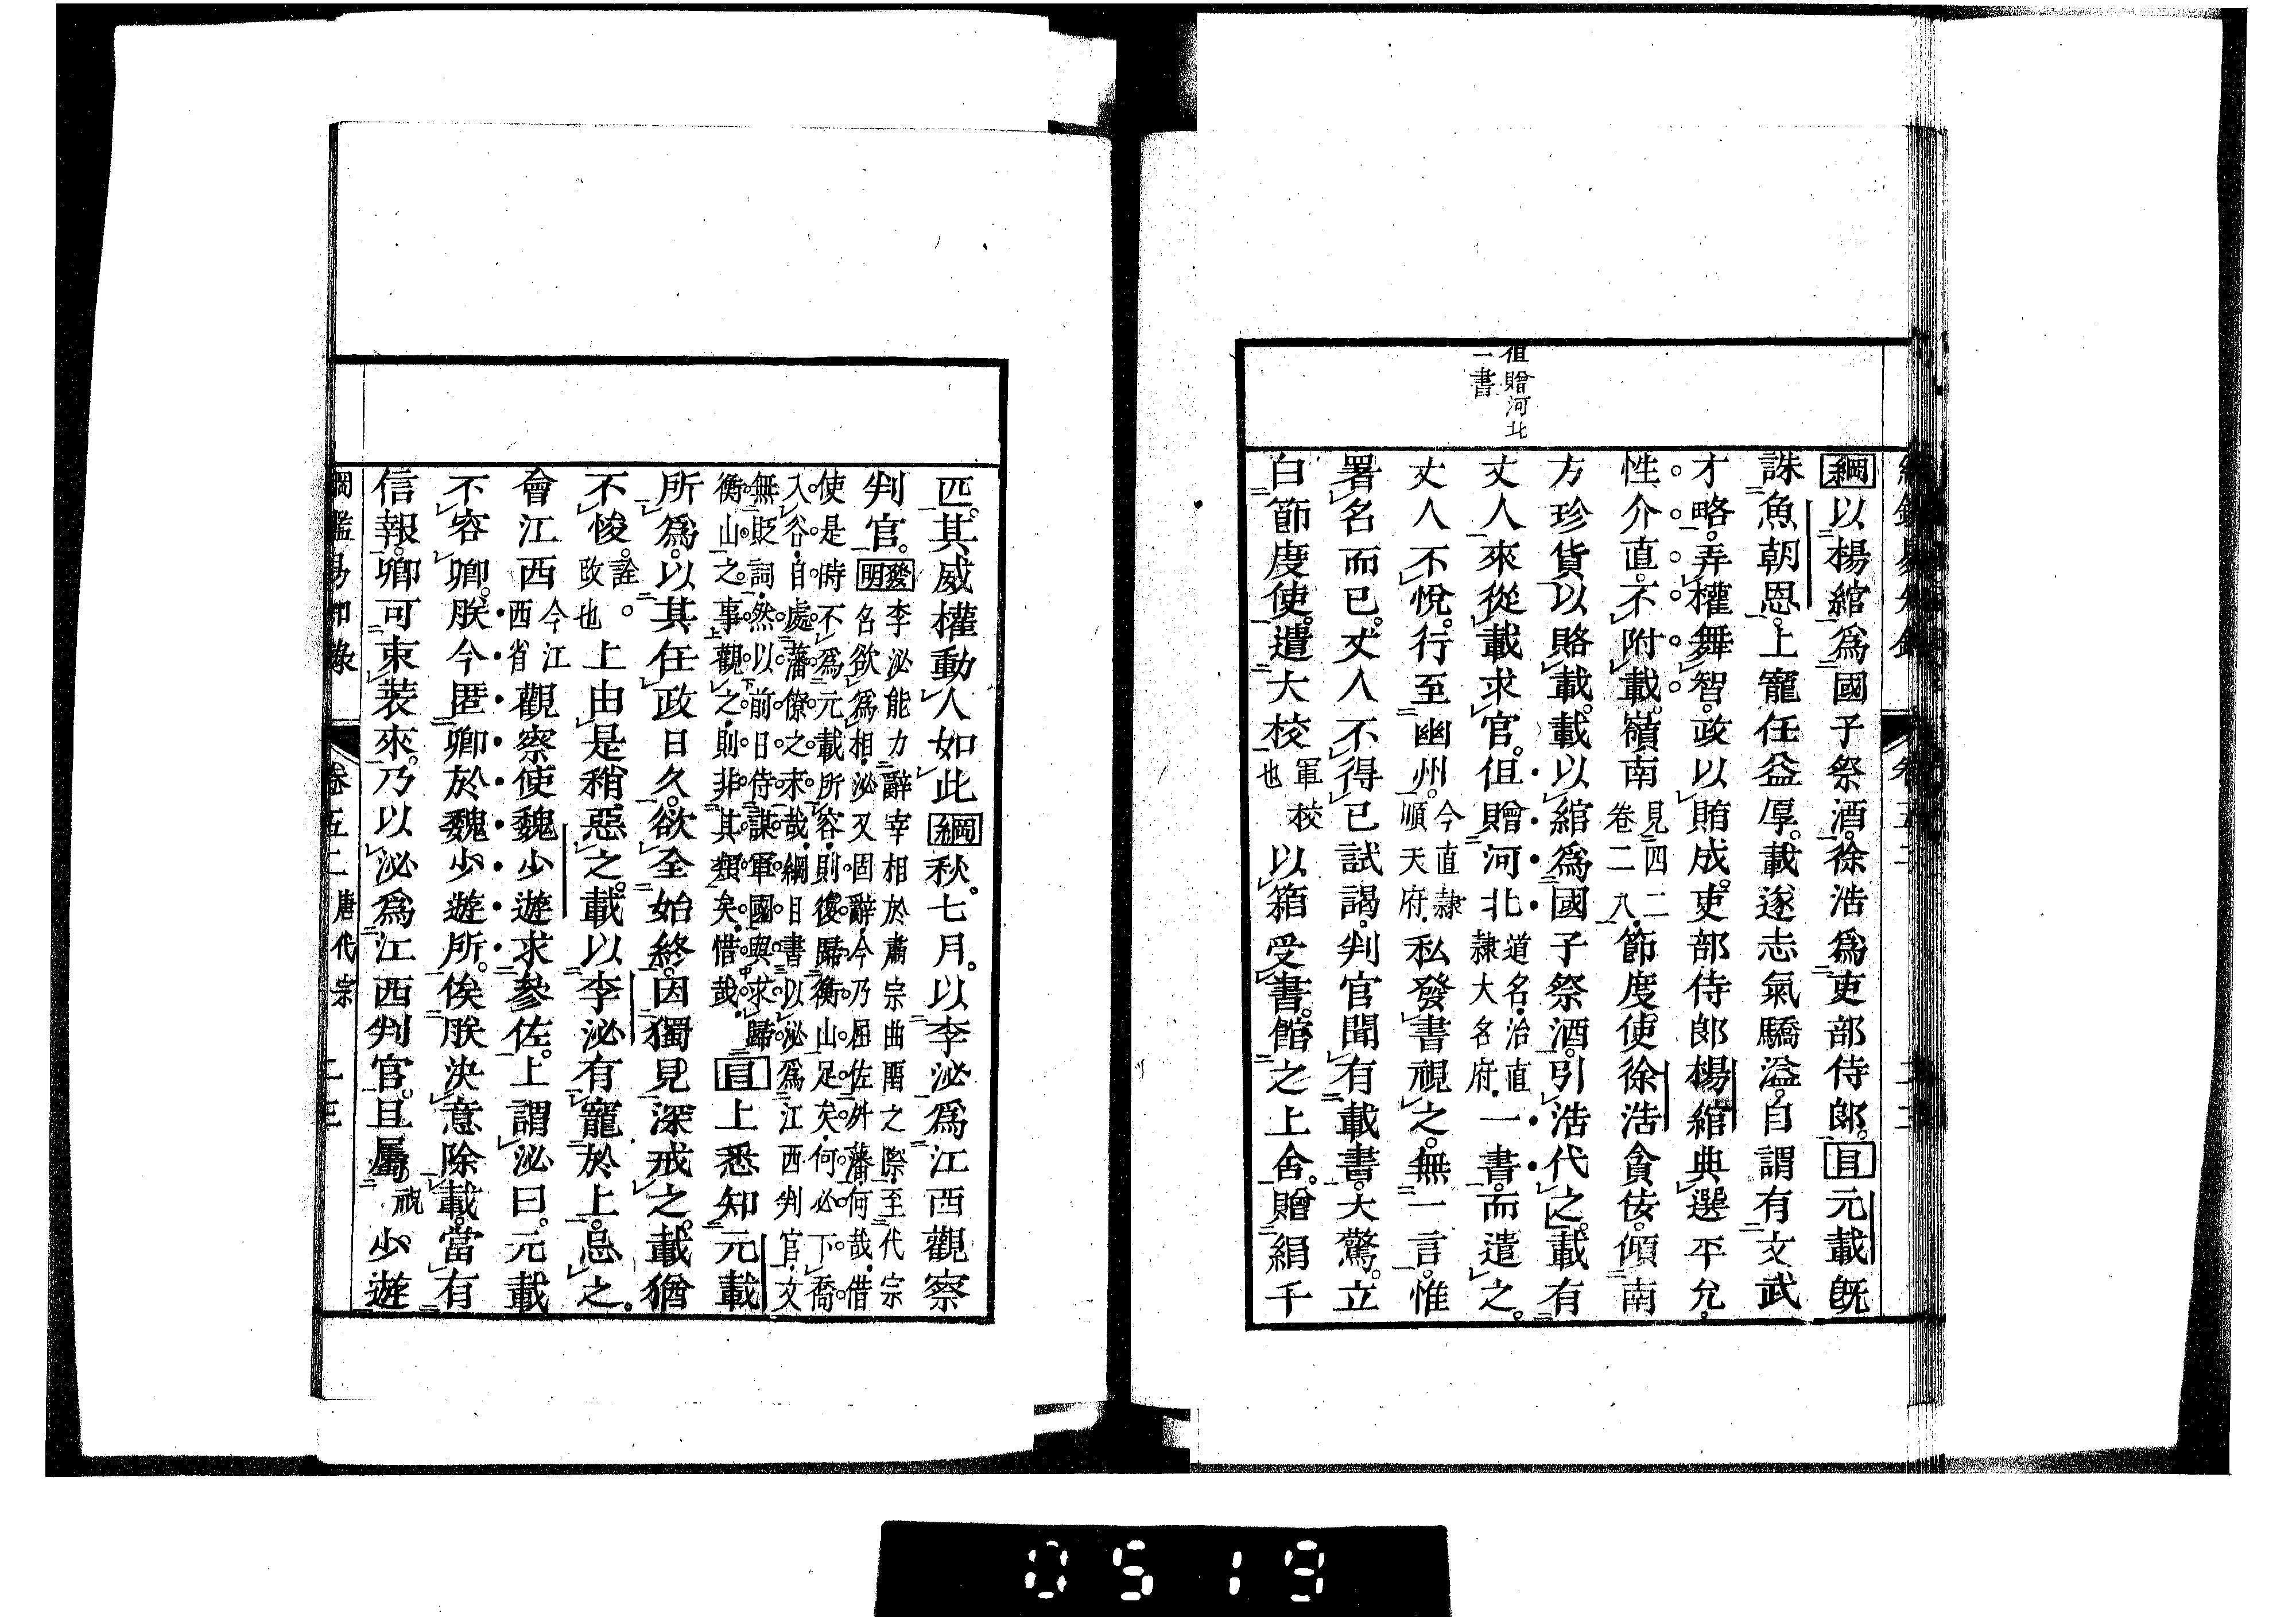 綱以楊綰爲國子祭酒。徐浩爲吏部侍郎。目元載既
誅魚朝恩。上寵任益厚。載遂志氣驕溢。自謂有文武
才略。弄權舞智。政以賄成。吏部侍郎楊綰典選平允。
性介直。不附載。嶺南見四二卷二八節度使徐浩貪佞。傾南
方珍貨以賂載。載以綰爲國子祭酒。引浩代之。載有
丈人來從載求官。但贈河北道名治直隸大名府一書。而遣之。
丈人不悅。行至幽州。今直隸順天府私發書視之。無一言。惟
署名而已。丈人不得已試謁。判官聞有載書。大驚。立
白節度使。遣大校軍校也以箱受書。館之上舍。贈絹千
但贈河北
一書
匹。其威權動人如此綱秋。七月。以李泌爲江西觀察
判官。發明李泌能力辭宰相於肅宗曲留之際至代宗
名欲爲相泌又固辭今乃屈佐外藩何哉借
使是時不爲元載所容則復歸衡山足矣何必下喬
入谷自處藩僚之末哉綱目書以泌爲江西判官文
無貶詞然以前日侍謀軍國與求歸
衡山之事觀之則非其類矣惜哉目上悉知元載
所爲。以其任政日久。欲全始終。因獨見深戒之。載猶
不悛。詮。改也上由是稍惡之。載以李泌有寵於上。忌之。
會江西今江西省觀察使魏少遊求參佐。上謂泌曰。元載
不容卿。朕今匿卿於魏少遊所。俟朕決意除載。當有
信報。卿可束裝來。乃以泌爲江西判官。且屬戒少遊
綱鑑易知錄 卷五二 唐代宗 二三
0519